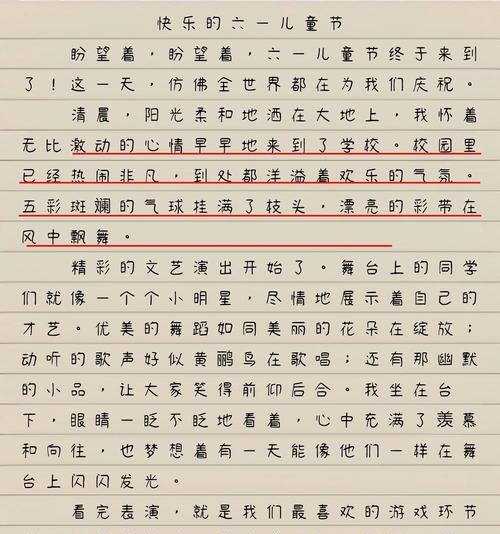 快乐的六一儿童节
盼望着，盼望着，六一儿童节终于来到
了！这一天，仿佛全世界都在为我们庆祝。
清晨，阳光柔和地洒在大地上，我怀着
无比激动的心情早早地来到了学校。校园里
已经热闹非凡，到处都洋溢着欢乐的气氛。
五彩斑斓的气球挂满了枝头，漂亮的彩带在
风中飘舞。
精彩的文艺演出开始了。舞台上的同学
们就像一个个小明星，尽情地展示着自己的
才艺。优美的舞蹈如同美丽的花朵在绽放；
动听的歌声好似黄鹂鸟在歌唱；还有那幽默
的小品，让大家笑得前仰后合。我坐在台
下，眼睛一眨不眨地看着，心中充满了羡慕
和向往，也梦想着有一天能像他们一样在舞
台上闪闪发光。
看完表演，就是我们最喜欢的游戏环节